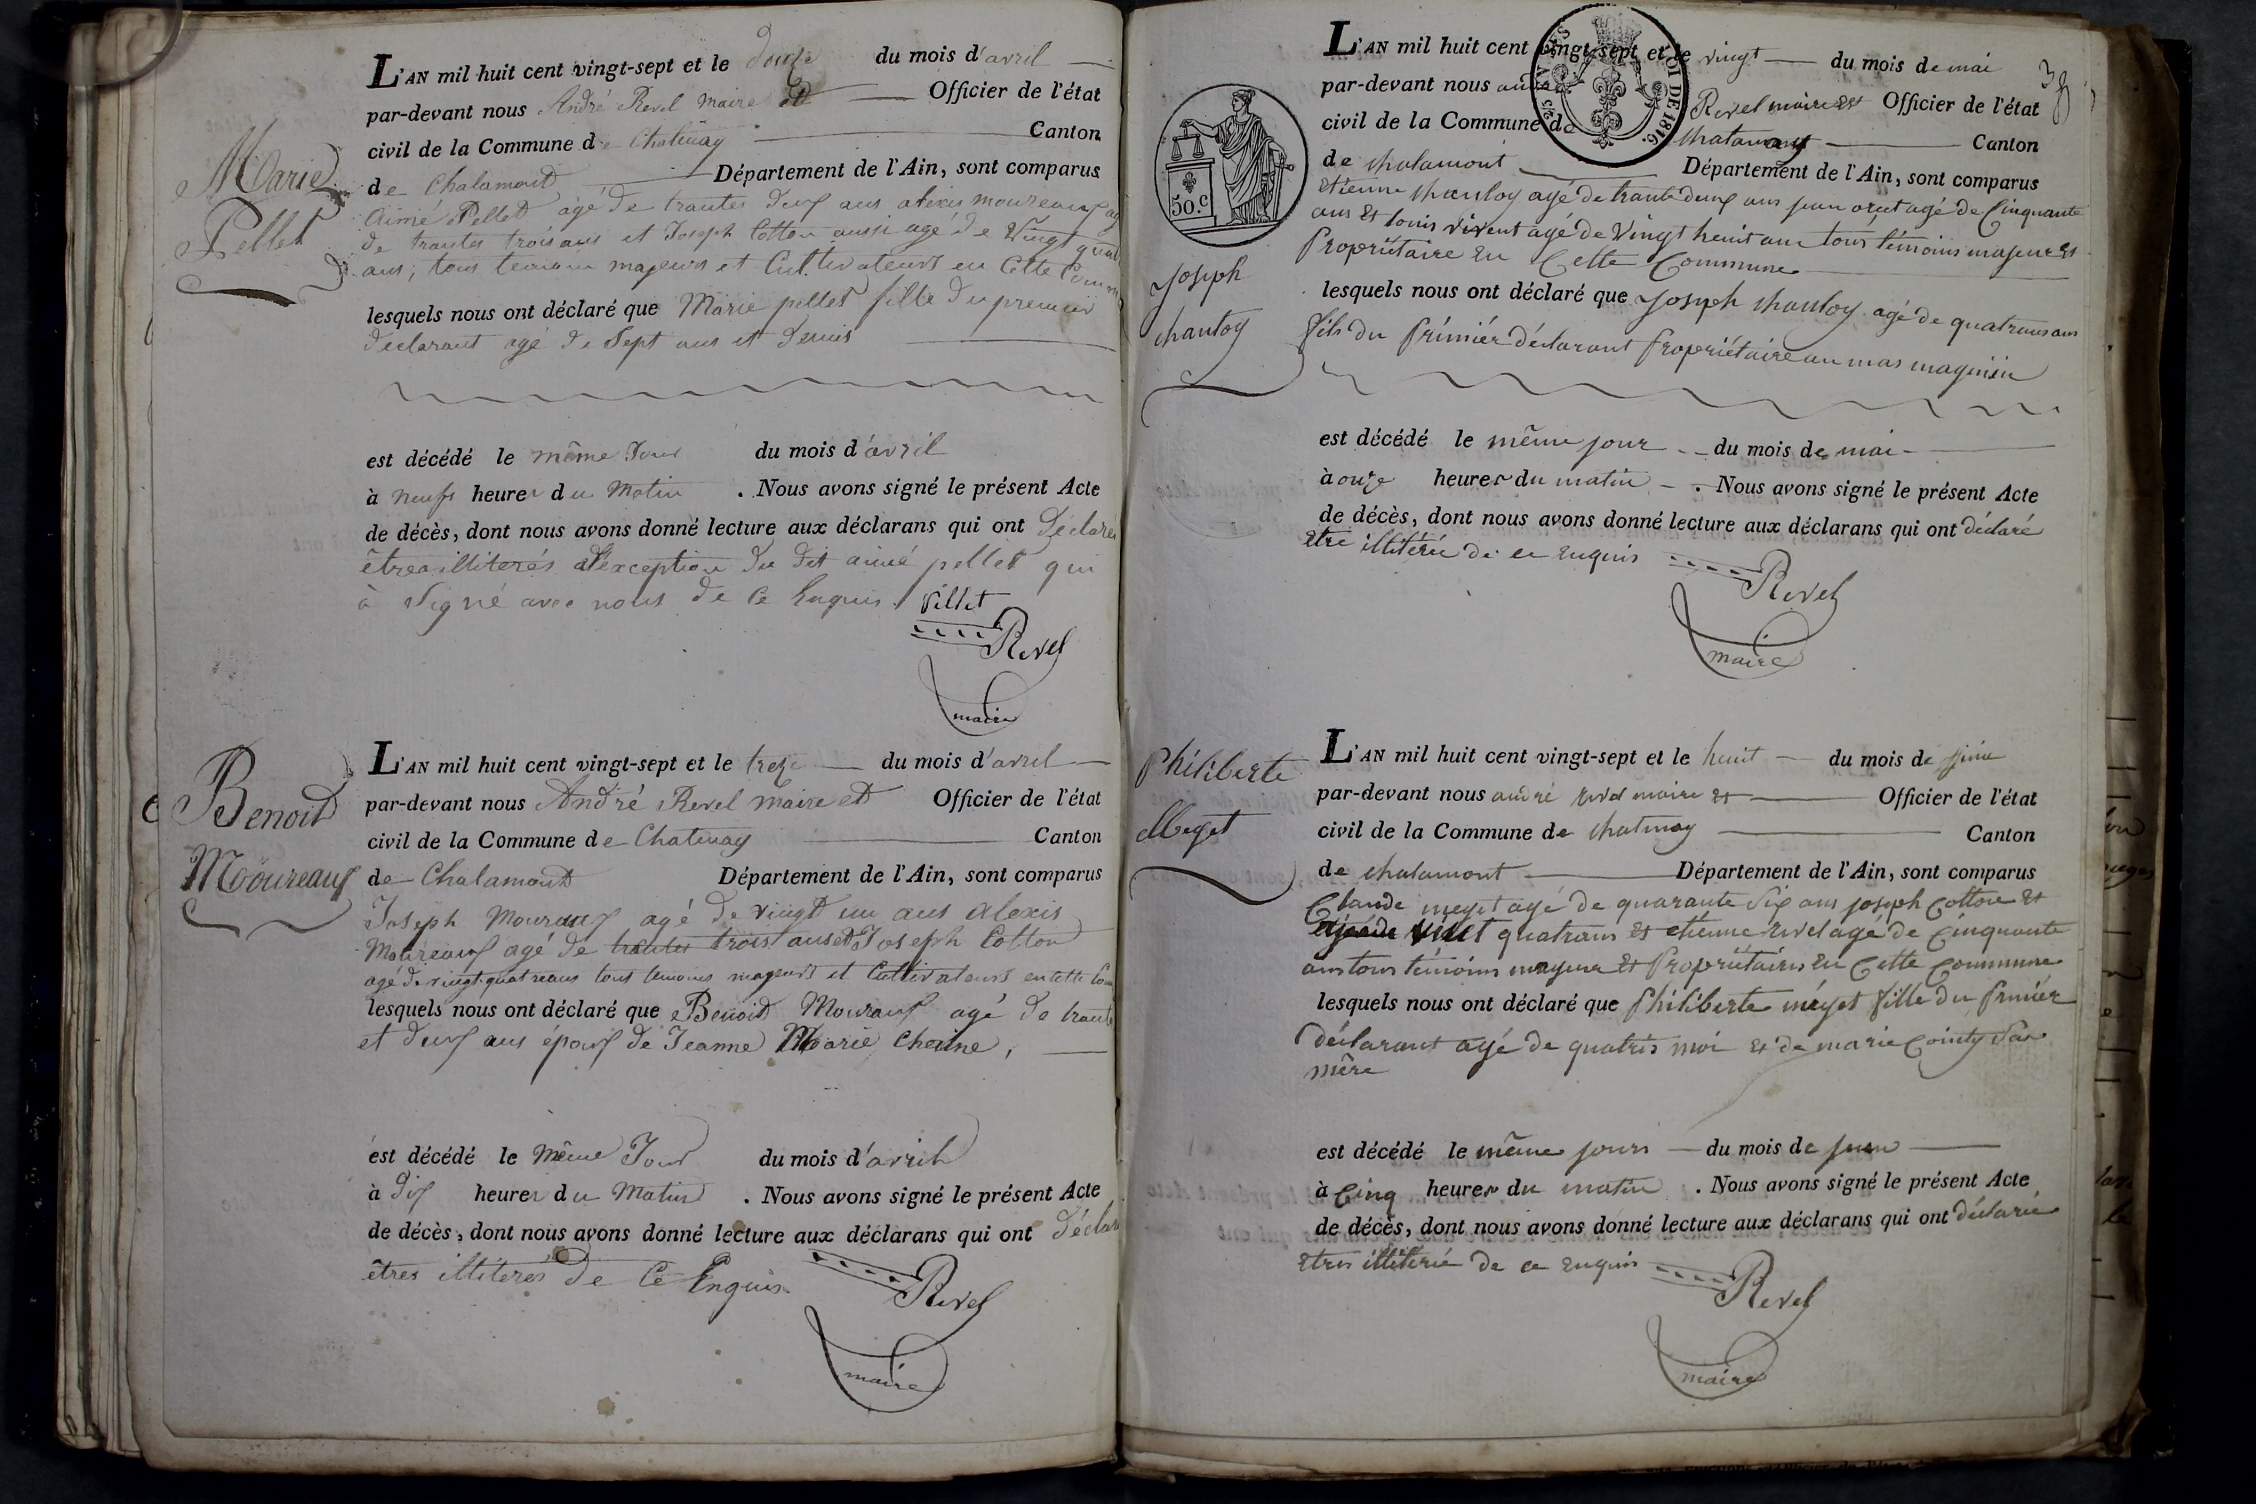 Marie
Pellet
L'AN mil huit cent vingt-sept et le douze du mois d'avril
par-devant nous André Revel maire et Officier de l'état
civil de la Commune de Chatenay Canton
de Chalamont Département de l'Ain, sont comparus
Aimé Pellet agé de trantes deux ans alexis moureaux ag
de trantes trois ans et Joseph Cotton aussi agé de Vingt quat
ans, tous temoin majeurs et Cultivateurs en Cette Comm
lesquels nous ont déclaré que Marie pellet fille du premier
declarant agé de Sept ans et demis
est décédé le même Jour du mois d'avril
à neufs heures du Matin . Nous avons signé le présent Acte
de décès, dont nous avons donné lecture aux déclarans qui ont déclarés
être illiterés a l'exception du dit aimé pellet qui
à Signé avec nous de Ce Enquis. Pillet
Revel
maire
Benoit
Moureaux
L'AN mil huit cent vingt-sept et le treze du mois d'avril
par-devant nous André Revel maire et Officier de l'état
civil de la Commune de Chatenay Canton
de Chalamont Département de l'Ain, sont comparus
Joseph Mouraux agé de vingt un ans alexis
Moureaux agé de trantes trois ans et Joseph Cotton
agé de vingt quatre ans tous temoins majeurs et Cultivateurs en cette Co
lesquels nous ont déclaré que Benoit Mouraux agé de trante
et deux ans époux de Jeanne Marie Cheine,
est décédé le Même Jour du mois d'avril
à dix heures du Matin . Nous avons signé le présent Acte
de décès, dont nous avons donné lecture aux déclarans qui ont déclaré
êtres illiterés de Ce Enquis.
Revel
maire
39
50.C
LOI DE 1816.
Joseph
chanloy
L'AN mil huit cent vingt-sept et le vingt du mois de mai
par-devant nous andré Revel maire et Officier de l'état
civil de la Commune de chatenay Canton
de chalamont Département de l'Ain, sont comparus
Etienne chanloy agé de trante deux ans jean agé de Cinquante
ans Et louis vivent agé de Vingt heuit ans tous témoins majeur Et
Propriétaire En Cette Commune
lesquels nous ont déclaré que Joseph chanloy agé de quatreans
fils du Prémiér déclarant Propriétaire au mas
est décédé le même jour du mois de mai
à onze heures du matin . Nous avons signé le présent Acte
de décès, dont nous avons donné lecture aux déclarans qui ont déclaré
Etre illitérée de ce Enquis
Revel
maire
Philiberte
Meyet
L'AN mil huit cent vingt-sept et le heuit du mois de juin
par-devant nous andré revel maire Et Officier de l'état
civil de la Commune de chatenay Canton
de chalamont Département de l'Ain, sont comparus
Claude meyet agé de quarante Six ans joseph Cotton Et
agé de Vint quatrans Et etienne revel agé de Cinquante
ans tous témoins majeur Et Propriétaires En Cette Commune
lesquels nous ont déclaré que Philiberte méyet fille du Prmiér
déclarant agé de quatrés moi Et de marie Cointy Sa
mêre
est décédé le même jours du mois de juin
à Cinq heures du matin . Nous avons signé le présent Acte
de décès, dont nous avons donné lecture aux déclarans qui ont déclarée
Etres illitérié de ce Enquis
Revel
maire